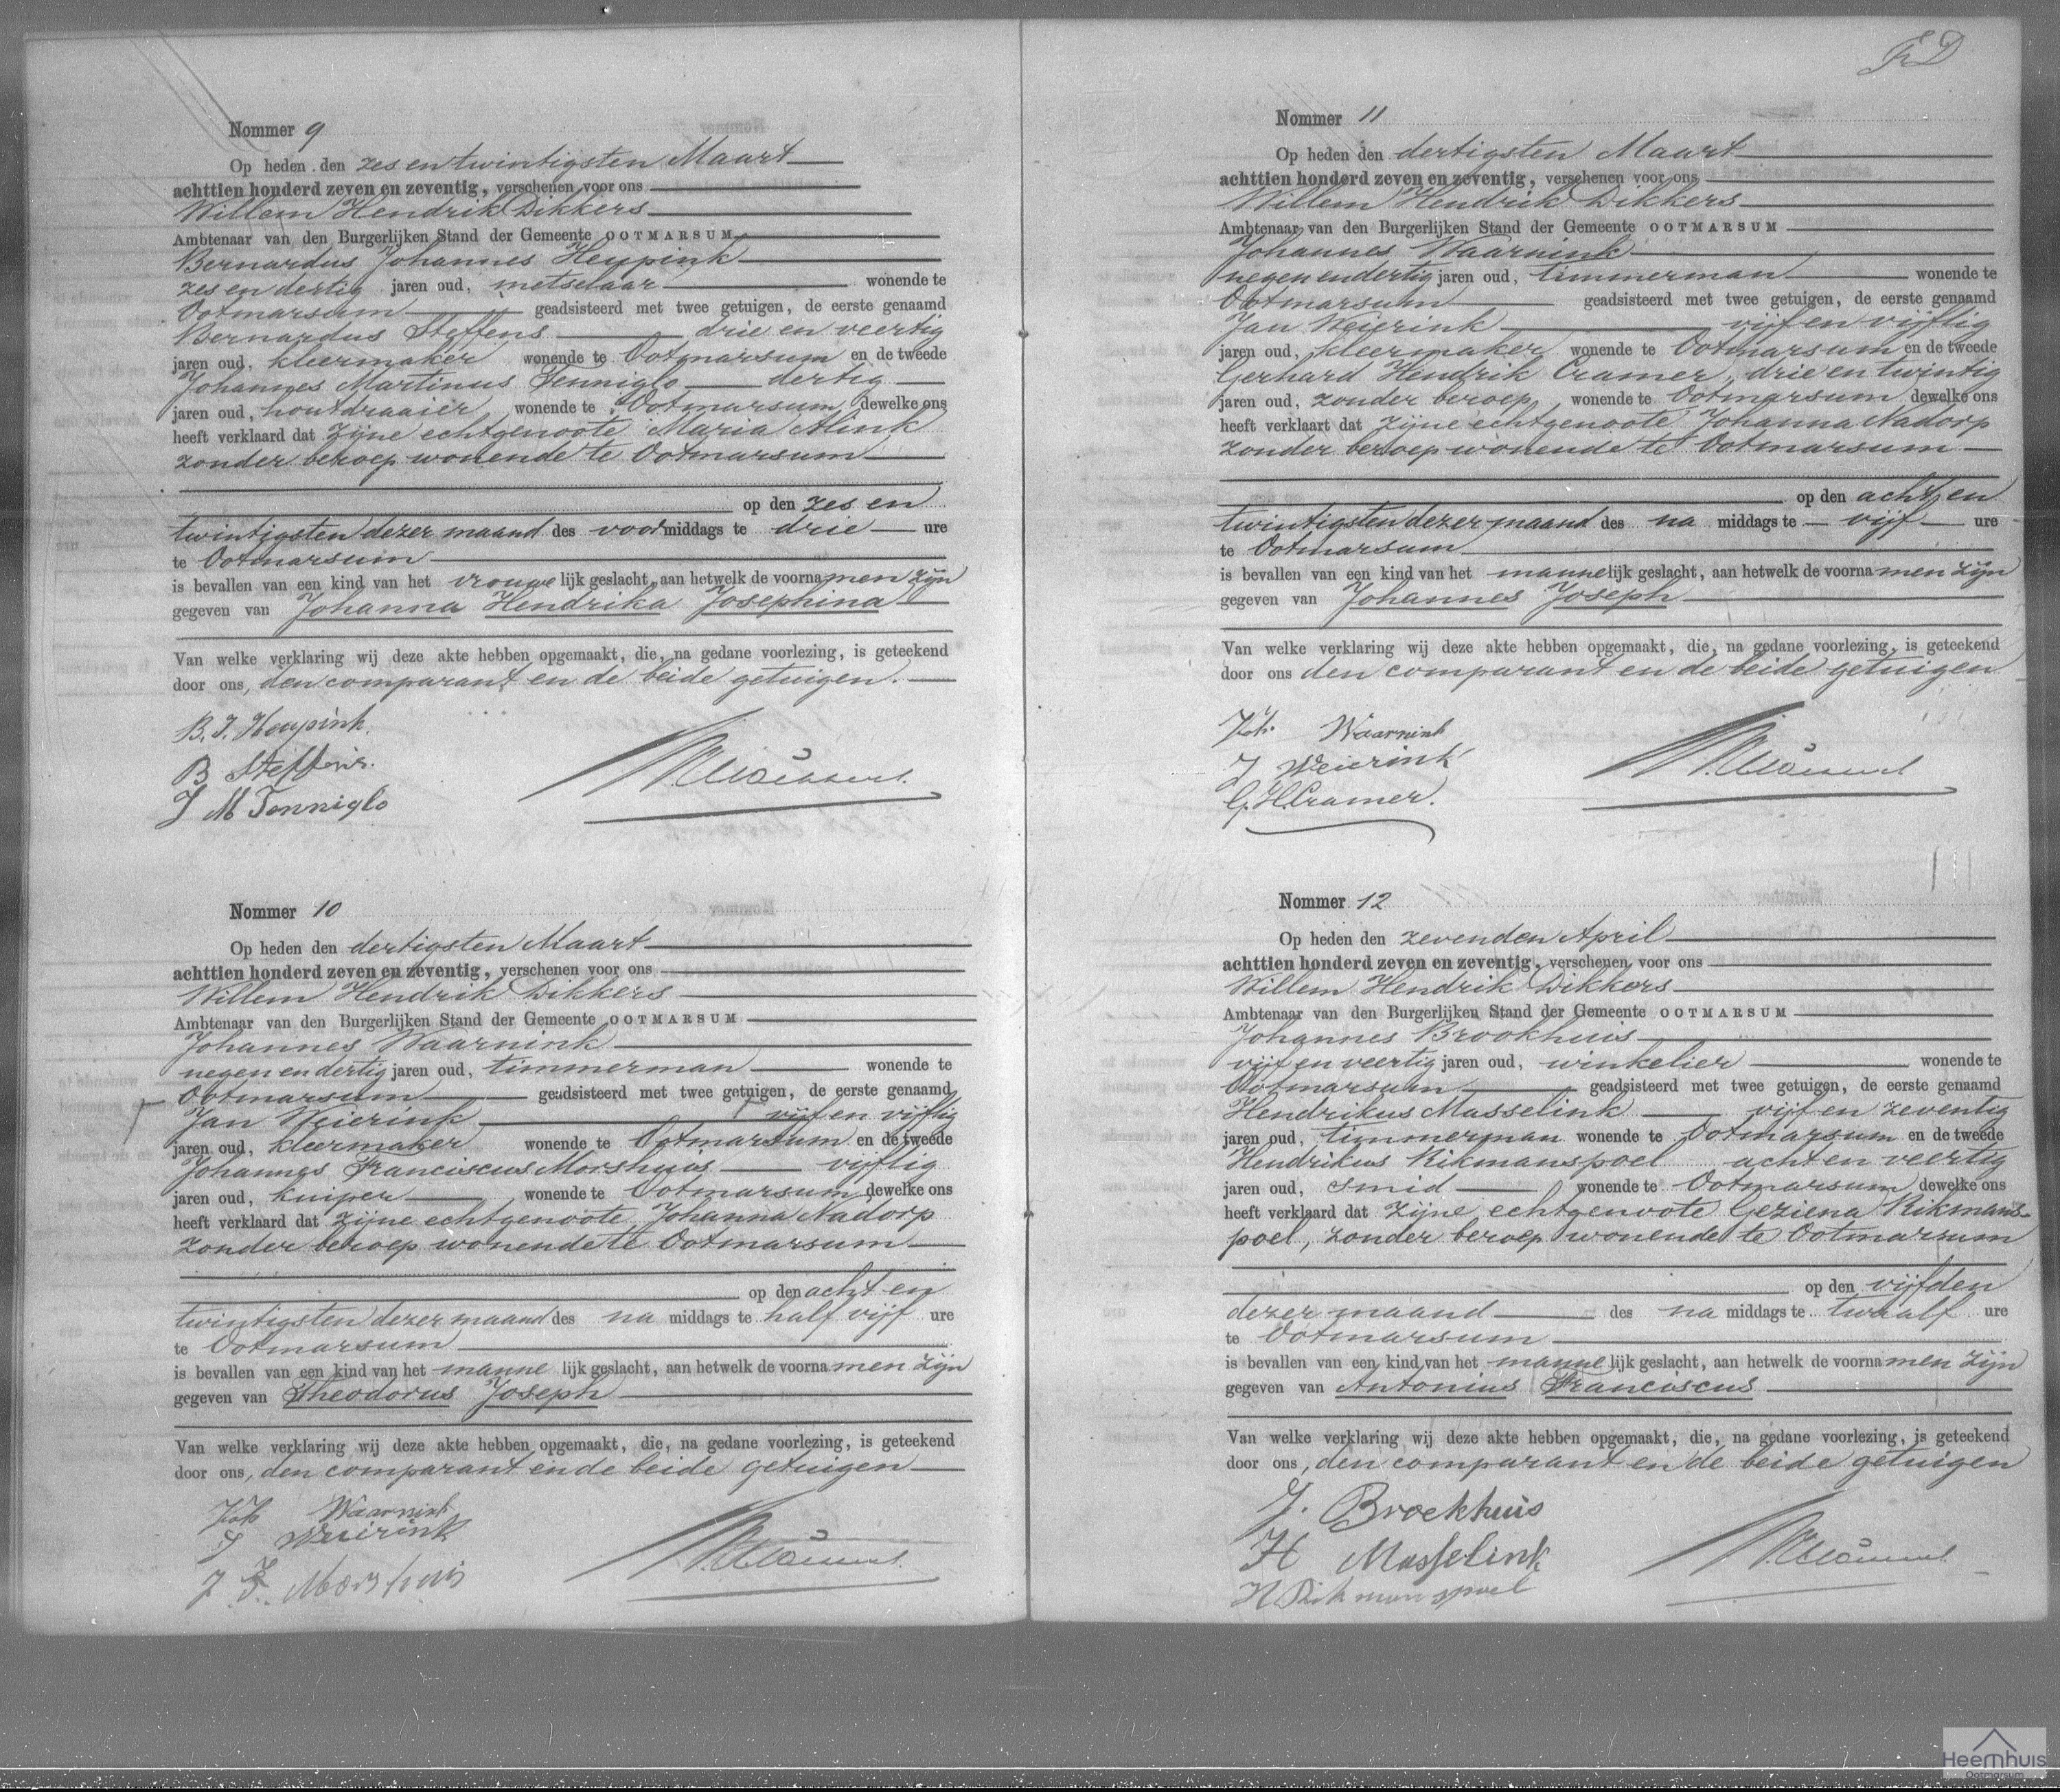 Nommer 9
Op heden den zes en twintigsten Maart
achttien honderd zeven en zeventig, verschenen voor ons
Willem Hendrik Dikkers
Ambtenaar van den Burgerlijken Stand der Gemeente OOTMARSUM
Bernardus Johannes Heupink
zes en dertig jaren oud, metselaar wonende te
Ootmarsum geadsisteerd met twee getuigen, de eerste genaamd
Bernardus Steffens drie en veertig
jaren oud, kleermaker wonende te Ootmarsum en de tweede
Johannes Martinus Tenniglo dertig
jaren oud, houtdraaier wonende te Ootmarsum dewelke ons
heeft verklaard dat zijne echtgenoote Maria Alink
zonder beroep wonende te Ootmarsum
op den zes en
twintigsten dezer maand des voormiddags te drie ure
te Ootmarsum
is bevallen van een kind van het vrouwelijk geslacht, aan hetwelk de voornamen zijn
gegeven van Johanna Hendrika Josephina
Van welke verklaring wij deze akte hebben opgemaakt, die, na gedane voorlezing, is geteekend
door ons, den comparant en de beide getuigen.
B. J. Heupink
B Steffens.
J M Tenniglo
Nommer 10
Op heden den dertigsten Maart
achttien honderd zeven en zeventig, verschenen voor ons
Willem Hendrik Dikkers
Ambtenaar van den Burgerlijken Stand der Gemeente OOTMARSUM
Johannes Waarnink
negen en dertig jaren oud, timmerman wonende te
Ootmarsum geadsisteerd met twee getuigen, de eerste genaamd
Jan Weierink vijf en vijftig
jaren oud, kleermaker wonende te Ootmarsum en de tweede
Johannes Franciscus Morshuis vijftig
jaren oud, kuiper wonende te Ootmarsum dewelke ons
heeft verklaard dat zijne echtgenoote Johanna Nadorp
zonder beroep wonende te Ootmarsum
op den acht en
twintigsten dezer maand des na middags te half vijf ure
te Ootmarsum
is bevallen van een kind van het mannelijk geslacht, aan hetwelk de voornamen zijn
gegeven van Theodorus Joseph
Van welke verklaring wij deze akte hebben opgemaakt, die, na gedane voorlezing, is geteekend
door ons, den comparant en de beide getuigen
Joh Waarnink
J Weierink
J F. Morshuis
Nommer 11
Op heden den dertigsten Maart
achttien honderd zeven en zeventig, verschenen voor ons
Willem Hendrik Dikkers
Ambtenaar van den Burgerlijken Stand der Gemeente OOTMARSUM
Johannes Waarnink
negen en dertig jaren oud, timmerman wonende te
Ootmarsum geadsisteerd met twee getuigen, de eerste genaamd
Jan Weierink vijf en vijftig
jaren oud, kleermaker wonende te Ootmarsum en de tweede
Gerhard Hendrik Cramer, drie en twintig
jaren oud, zonder beroep, wonende te Ootmarsum dewelke ons
heeft verklaart dat zijne echtgenoote Johanna Nadorp
zonder beroep wonende te Ootmarsum
op den acht en
twintigsten dezer maand des na middags te vijf ure
te Ootmarsum
is bevallen van een kind van het mannelijk geslacht, aan hetwelk de voornamen zijn
gegeven van Johannes Joseph
Van welke verklaring wij deze akte hebben opgemaakt, die, na gedane voorlezing, is geteekend
door ons den comparant en de beide getuigen
Joh. Waarnink
J Weierink
G. H. Cramer.
Nommer 12
Op heden den zevenden April
achttien honderd zeven en zeventig, verschenen voor ons
Willem Hendrik Dikkers
Ambtenaar van den Burgerlijken Stand der Gemeente OOTMARSUM
Johannes Brookhuis
vijf en veertig jaren oud, winkelier wonende te
Ootmarsum geadsisteerd met twee getuigen, de eerste genaamd
Hendrikus Masselink vijf en zeventig
jaren oud, timmerman wonende te Ootmarsum en de tweede
Hendrikus Rikmanspoel acht en veertig
jaren oud, smid wonende te Ootmarsum dewelke ons
heeft verklaard dat zijne echtgenoote Geziena Rikmans-
poel, zonder beroep wonende te Ootmarsum
op den vijfden
dezer maand des na middags te twaalf ure
te Ootmarsum
is bevallen van een kind van het mannelijk geslacht, aan hetwelk de voornamen zijn
gegeven van Antonius Franciscus
Van welke verklaring wij deze akte hebben opgemaakt, die, na gedane voorlezing, is geteekend
door ons, den comparant en de beide getuigen
J. Broekhuis
H Masselink
H Rikmanspoel
Heemhuis
Ootmarsum